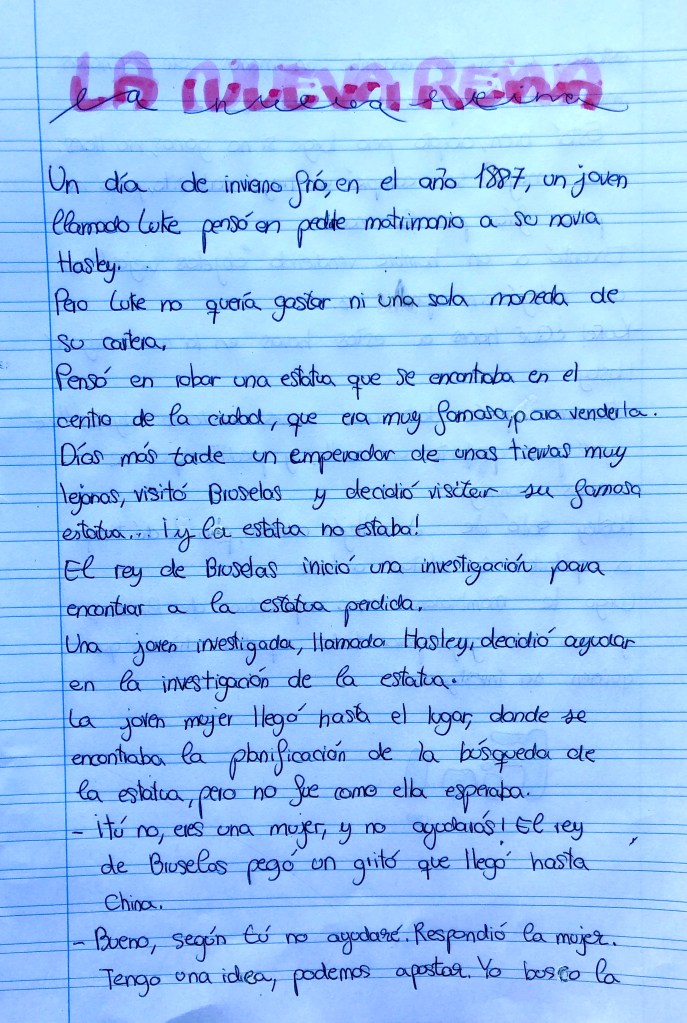 LA NUEVA REINA
la nueva reina
Un día de invierno frió, en el año 1887, un joven
llamado Luke pensó en pedile matrimonio a su novia
Hasley.
Pero Luke no quería gastar ni una sola moneda de
su cartera.
Pensó en robar una estatua que se encontraba en el
centro de la ciudad, que era muy famosa, para venderla.
Días más tarde un emperador de unas tierras muy
lejanas, visitó Bruselas y decidió visitar su famosa
estatua... ¡y la estatua no estaba!
El rey de Bruselas inició una investigación para
encontrar a la estatua perdida.
Una joven investigada, llamada Hasley, decidió ayudar
en la investigación de la estatua.
La joven mujer llegó hasta el lugar, donde se
encontraba la planificación de la búsqueda de
la estatua, pero no fue como ella esperaba.
- ¡tú no, eres una mujer, y no ayudarás! El rey
de Bruselas pegó un gritó que llegó hasta
China.
- Bueno, según tú no ayudaré. Respondió la mujer.
Tengo una idea, podemos apostar. Yo busco la